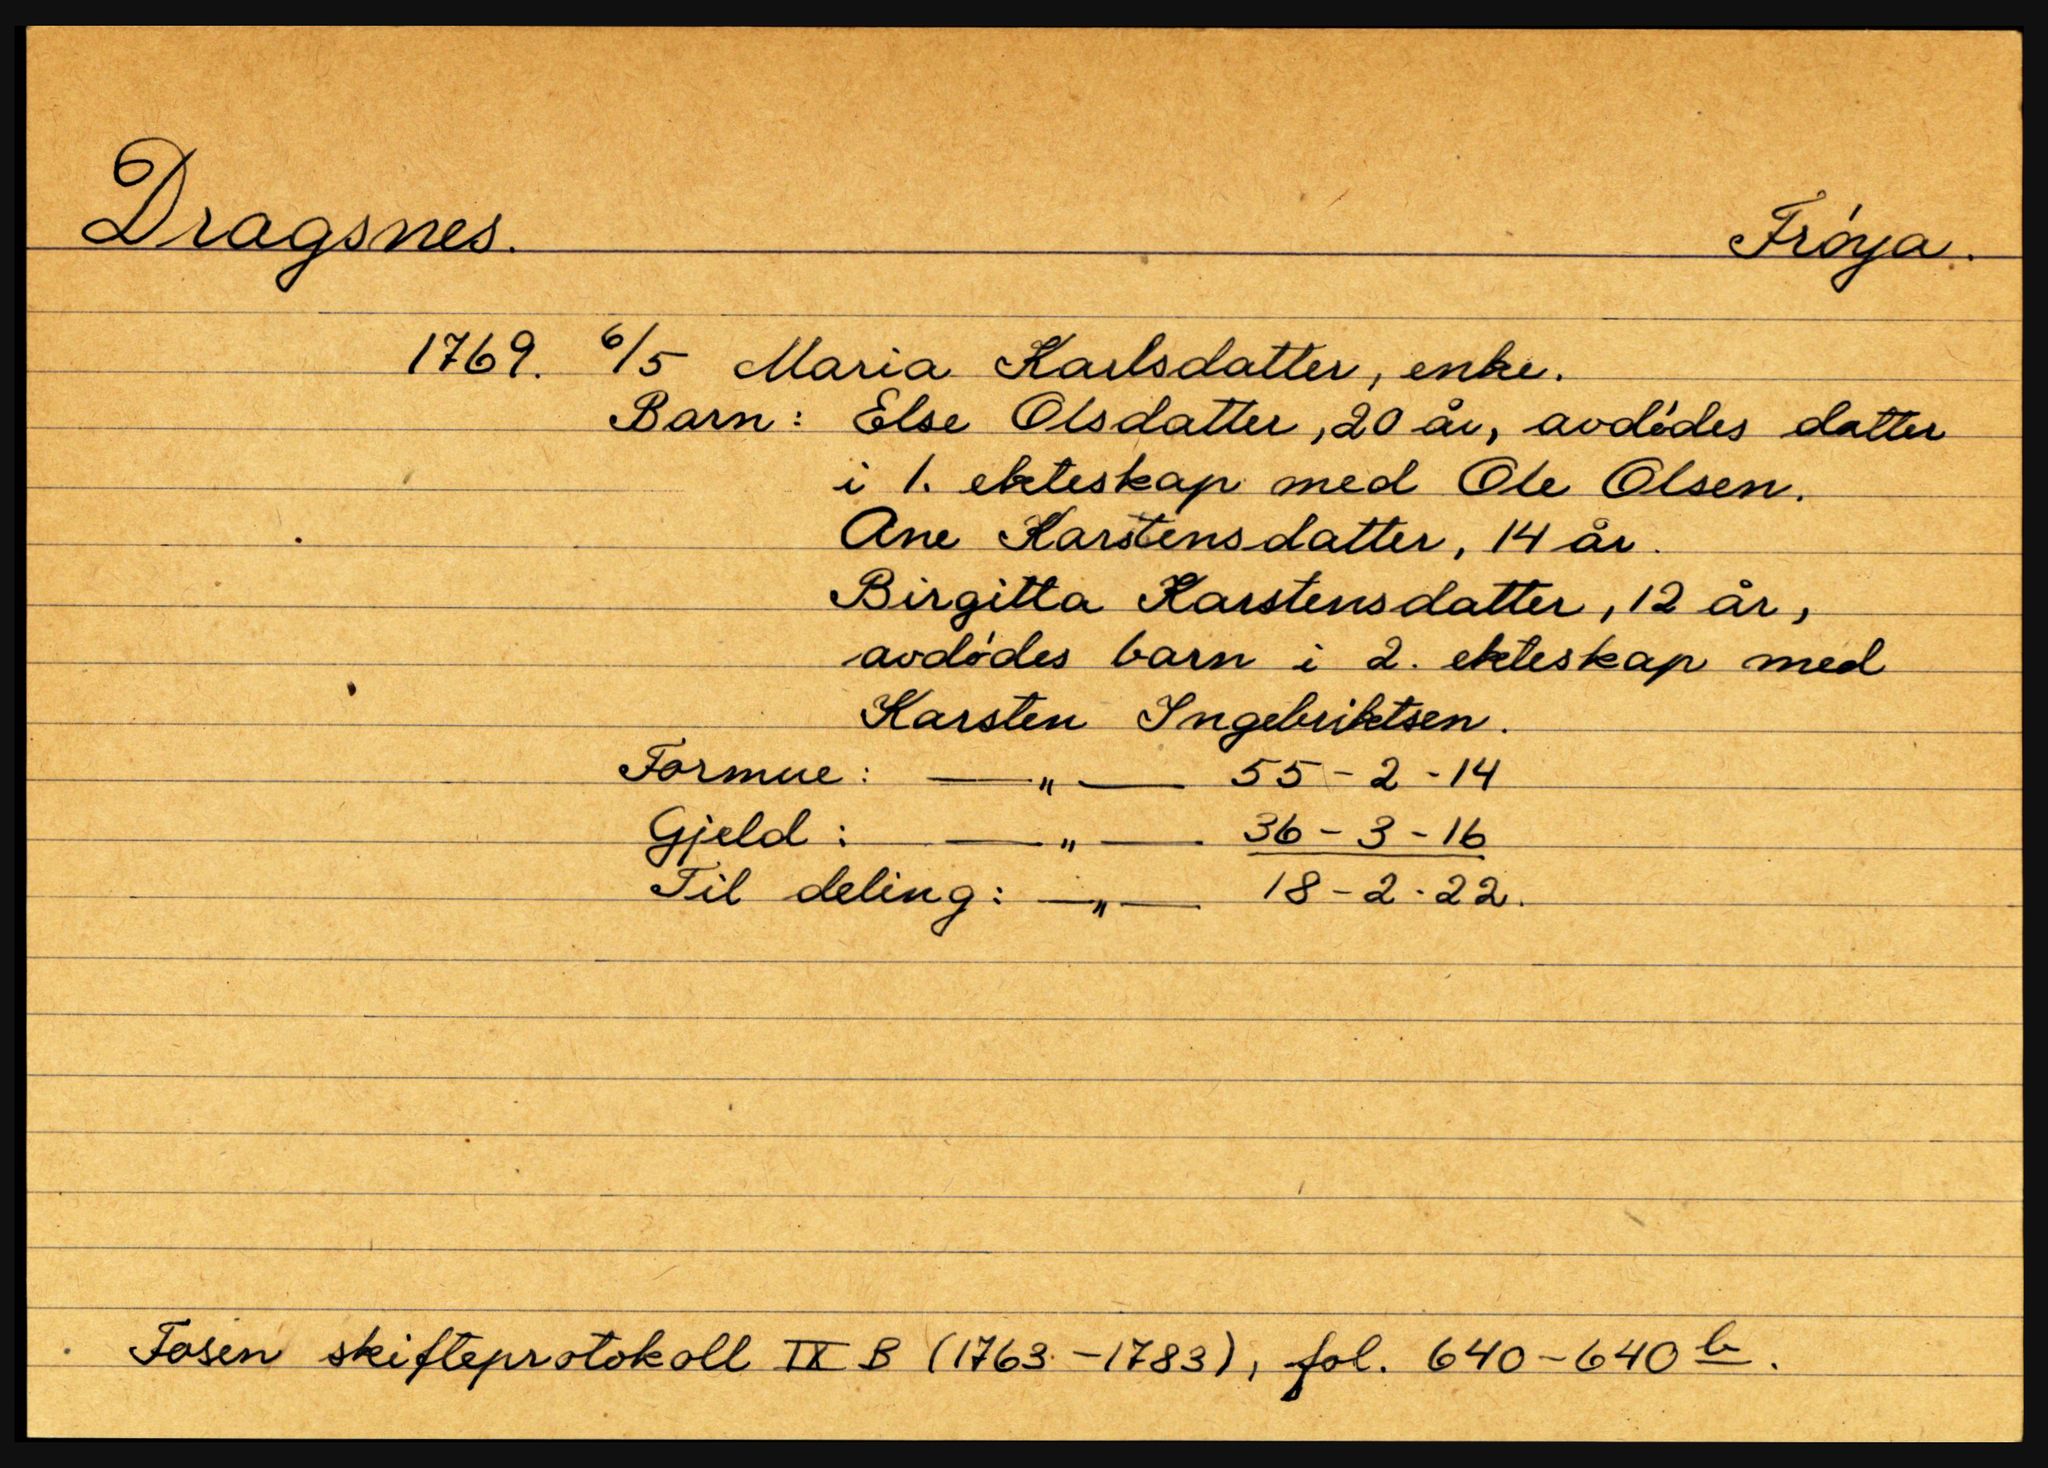 Dragsnes. Frøya.
1769. 6/5 Maria Karlsdatter, enke.
Barn: Else Olsdatter, 20 år, avdødes datter
i 1. ekteskap med Ole Olsen.
Ane Karstensdatter, 14 år.
Birgitta Karstensdatter, 12 år,
avdødes barn i 2. ekteskap med
Karsten Ingebriktsen.
Formue: — " — 55 - 2 - 14
Gjeld: — " — 36 - 3 - 16
Til deling: — " — 18 - 2 - 22.
Fosen skifteprotokoll IX B (1763 - 1783), fol. 640 - 640 b.